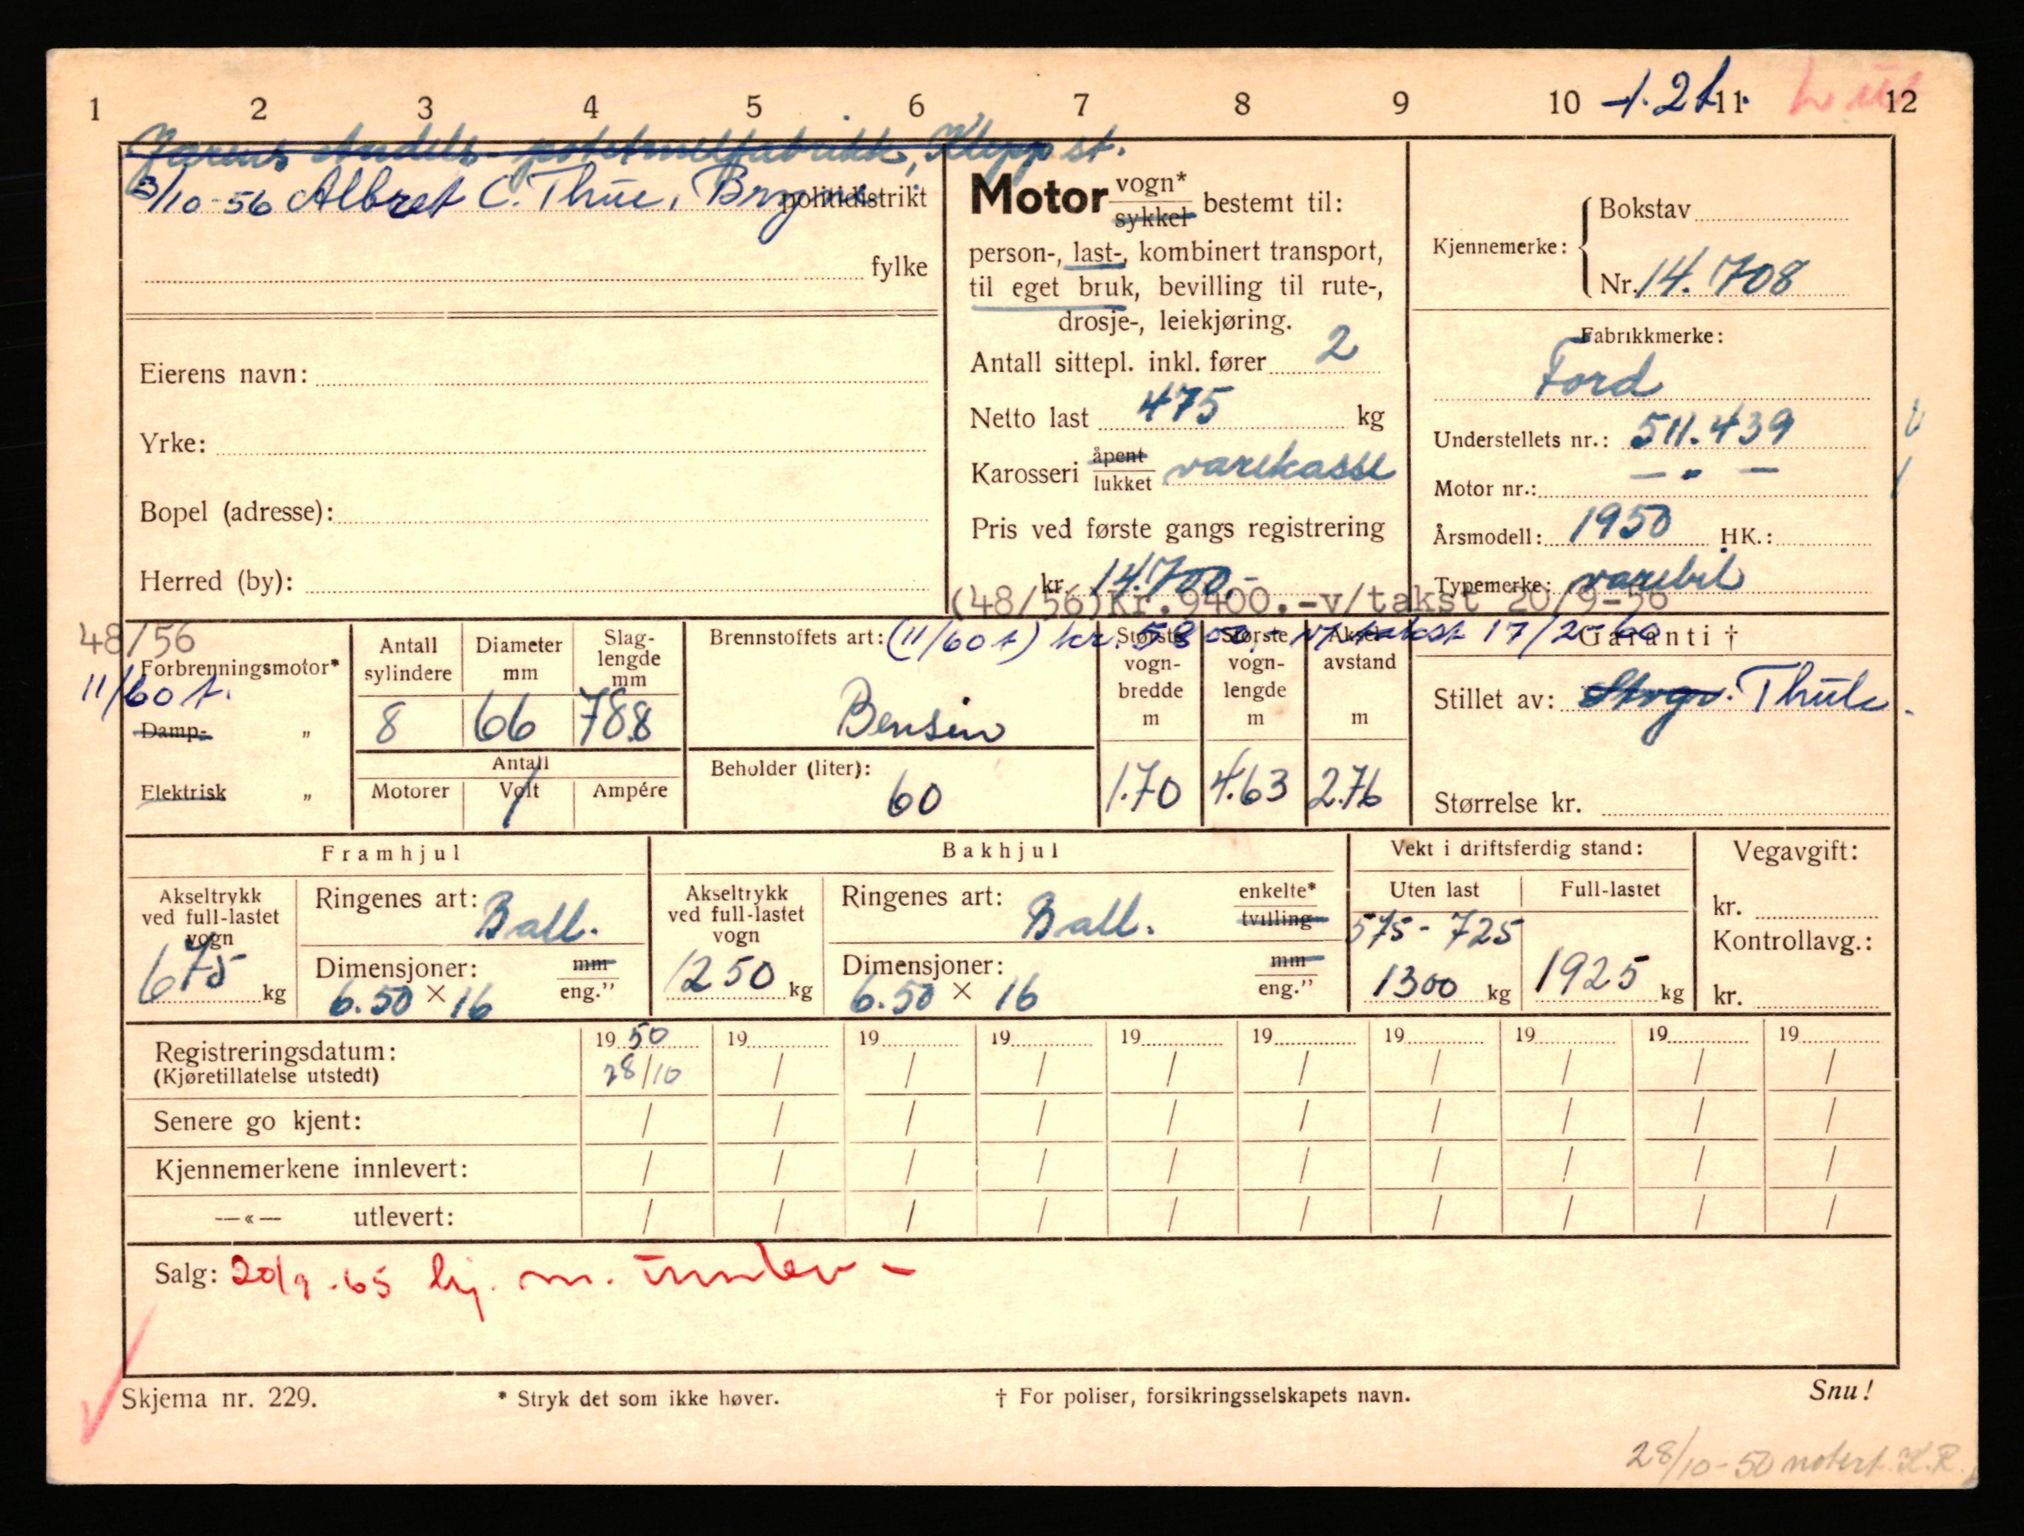 1 2 3 4 5 6 7 8 9 10 11 12
Jærens Andels-potetmelfabrikk, Klepp st.
3/10-56 Albret C. Thue, Bryne politidistrikt
fylke
Eierens navn:
Yrke:
Bopel (adresse):
Herred (by):
Motor vogn* sykkel bestemt til:
person-, last-, kombinert transport,
til eget bruk, bevilling til rute-,
drosje-, leiekjøring.
Antall sittepl. inkl. fører 2
Netto last 475 kg
Karosseri åpent lukket varekasse
Pris ved første gangs registrering
kr. 14.700.-
(48/56) Kr. 9400.-v/takst 20/9-56
(11/60 t) kr. 5800.- v/takst 17/2-60
Kjennemerke: Bokstav
Nr. 14.708
Fabrikkmerke:
Ford
Understellets nr.: 511.439
Motor nr.: — „ —
Årsmodell: 1950 HK.:
Typemerke: varebil
48/56
Forbrenningsmotor*
11/60 t.
Damp- „
Elektrisk „
Antall sylindere 8
Diameter mm 66
Slag-lengde mm 78.8
Antall
Motorer Volt Ampére
Brennstoffets art:
Bensin
Beholder (liter):
60
Største vogn-bredde m 1.70
Største vogn-lengde m 4.63
Aksel-avstand m 2.76
Garanti †
Stillet av: Thule
Størrelse kr.
Framhjul
Akseltrykk ved full-lastet vogn 675 kg
Ringenes art: Ball.
Dimensjoner: mm eng."
6.50 × 16
Bakhjul
Akseltrykk ved full-lastet vogn 1250 kg
Ringenes art: Ball. enkelte* tvilling
Dimensjoner: mm eng."
6.50 × 16
Vekt i driftsferdig stand:
Uten last Full-lastet
575 - 725
1300 kg 1925 kg
Vegavgift:
kr.
Kontrollavg.:
kr.
Registreringsdatum: 1950 19 19 19 19 19 19 19 19 19
(Kjøretillatelse utstedt) 28/10 / / / / / / / / /
Senere go kjent: / / / / / / / / / /
Kjennemerkene innlevert: / / / / / / / / / /
—«— utlevert: / / / / / / / / / /
Salg: 20/9-65 kj. m. innlev -
Skjema nr. 229. * Stryk det som ikke høver. † For poliser, forsikringsselskapets navn. Snu!
28/10-50 notert K.R.